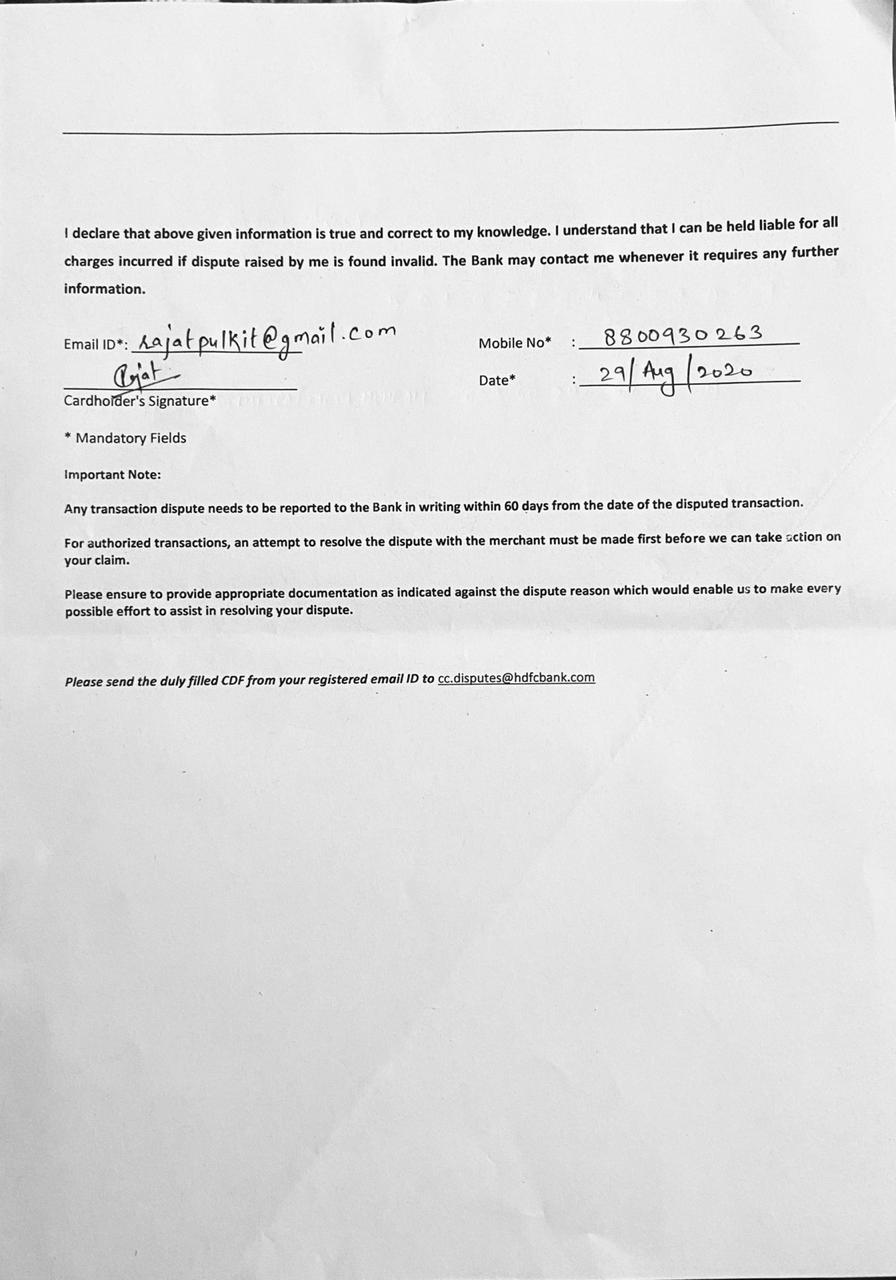 I declare that above given information is true and correct to my knowledge. I understand that I can be held liable for all
charges incurred if dispute raised by me is found invalid. The Bank may contact me whenever it requires any further
information.
Email ID*: rajatpulkit@gmail.com Mobile No* : 8800930263
Rajat
Date* : 29/Aug/2020
Cardholder's Signature*
* Mandatory Fields
Important Note:
Any transaction dispute needs to be reported to the Bank in writing within 60 days from the date of the disputed transaction.
For authorized transactions, an attempt to resolve the dispute with the merchant must be made first before we can take action on
your claim.
Please ensure to provide appropriate documentation as indicated against the dispute reason which would enable us to make every
possible effort to assist in resolving your dispute.
Please send the duly filled CDF from your registered email ID to cc.disputes@hdfcbank.com